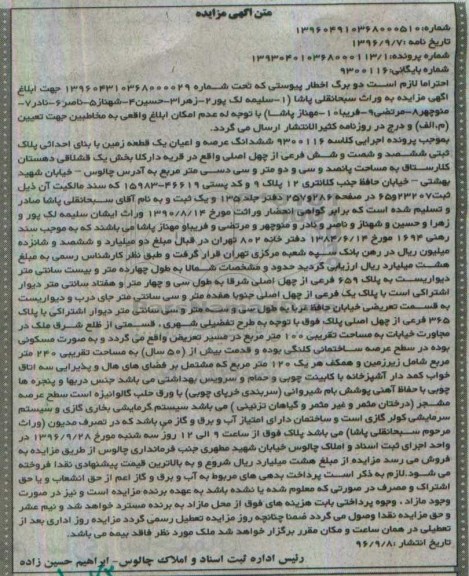 متن آگهی مزایده
شماره: ۱۳۹۶۰۴۹۱۰۳۶۸۰۰۰۵۱۰
تاریخ نامه: ۱۳۹۶/۹/۷
شماره پرونده: ۱۳۹۳۰۴۰۱۰۳۶۸۰۰۰۱۱۳/۱
شماره بایگانی: ۹۳۰۰۱۱۶
احتراما لازم است دو برگ اخطار پیوستی که تحت شماره ۱۳۹۶۰۴۳۱۰۳۶۸۰۰۰۰۲۹ جهت ابلاغ
آگهی مزایده به وراث سبحانقلی پاشا (۱-سلیمه لک پور۲-زهرا۳-حسین۴-شهناز۵-ناصر۶-نادر۷-
منوچهر۸-مرتضی۹-فریبا۱۰-مهناز پاشا) با توجه به عدم امکان ابلاغ واقعی به مخاطبین جهت تعیین
(م.الف) و درج در روزنامه کثیرالانتشار ارسال می گردد.
بموجب پرونده اجرایی کلاسه ۹۳۰۰۱۱۶ ششدانگ عرصه و اعیان یک قطعه زمین با بنای احداثی پلاک
ثبتی ششصد و شصت و شش فرعی از چهل اصلی واقع در قریه دارکلا بخش یک قشلاقی دهستان
کلارستاق به مساحت پانصد و سی و دو متر و سی دسی متر مربع به آدرس چالوس - خیابان شهید
بهشتی - خیابان حافظ جنب کلانتری ۱۲ پلاک ۹ و کد پستی ۴۶۶۱۹-۱۵۹۸۳ که سند مالکیت آن ذیل
ثبت ۲۳۲۰۷و۶۵ در صفحه ۲۸۶و۲۵۷ دفتر جلد ۱۳۵ و یک ثبت و به نام آقای سبحانقلی پاشا صادر
و تسلیم شده است که برابر گواهی انحصار وراثت مورخ ۱۳۹۰/۸/۱۴ وراث ایشان سلیمه لک پور و
زهرا و حسین و شهناز و ناصر و نادر و منوچهر و مرتضی و فریباو مهناز پاشا می باشند که به موجب سند
رهنی ۱۶۹۴ مورخ ۱۳۸۴/۶/۱۴ دفتر خانه ۸۰۲ تهران در قبال مبلغ دو میلیارد و ششصد و شانزده
میلیون ریال در رهن بانک سپه شعبه مرکزی تهران قرار گرفت و طبق نظر کارشناس رسمی به مبلغ
هشت میلیارد ریال ارزیابی گردید حدود و مشخصات شمالا به طول چهارده متر و بیست سانتی متر
دیواریست به پلاک ۶۵۹ فرعی از چهل اصلی شرقا به طول سی و چهار متر و هفتاد سانتی متر دیوار
اشتراکی است با پلاک یک فرعی از چهل اصلی جنوبا هفده متر و سی سانتی متر جای درب و دیواریست
به قسمت تعریضی خیابان حافظ غربا به طول سی و سه متر و سی سانتی متر دیوار اشتراکی با پلاک
۳۶۵ فرعی از چهل اصلی پلاک فوق با توجه به طرح تفصیلی شهری، قسمتی از ضلع شرق ملک در
مجاورت خیابان به مساحت تقریبی ۱۰۰ متر مربع در مسیر تعریض واقع می گردد و به صورت مسکونی
بوده در سطح عرصه ساختمانی کلنگی بوده و قدمت بیش از (۵۰ سال) به مساحت تقریبی ۲۴۰ متر
مربع شامل زیرزمین و همکف هر یک ۱۲۰ متر مربع که مشتمل بر فضای های هال و پذیرایی سه اتاق
خواب کمد دار آشپزخانه با کابینت چوبی و حمام و سرویس بهداشتی می باشد جنس دربها و پنجره ها
چوبی با حفاظ آهنی پوشش بام شیروانی (سربندی خرپای چوبی) با ورق حلب گالوانیزه است سطح عرصه
مشجر (درختان مثمر و غیر مثمر و گیاهان تزئینی) می باشد سیستم گرمایشی بخاری گازی و سیستم
سرمایشی کولر گازی است و ساختمان دارای امتیاز آب و برق و گاز می باشد که در تصرف مدیون (وراث
مرحوم سبحانقلی پاشا) می باشد پلاک فوق از ساعت ۹ الی ۱۲ روز سه شنبه مورخ ۱۳۹۶/۹/۲۸ در
واحد اجرای ثبت اسناد و املاک چالوس خیابان شهید مطهری جنب فرمانداری چالوس از طریق مزایده به
فروش می رسد مزایده از مبلغ هشت میلیارد ریال شروع و به بالاترین قیمت پیشنهادی نقدا فروخته
می شود. لازم به ذکر است پرداخت بدهی های مربوط به آب و برق و گاز اعم از حق انشعاب و یا حق
اشتراک و مصرف در صورتی که معلوم شده یا نشده باشد به عهده برنده مزایده است و نیز در صورت
وجود مازاد، وجوه پرداختی بابت هزینه های فوق از محل مازاد به برنده مسترد خواهد شد و نیم عشر
و حق مزایده نقدا وصول می گردد ضمنا چنانچه روز مزایده تعطیل رسمی گردد مزایده روز اداری بعد از
تعطیلی در همان ساعت و مکان مقرر برگزار خواهد شد ملک مورد نظر فاقد بیمه می باشد.
تاریخ انتشار: ۹۶/۹/۸
رئیس اداره ثبت اسناد و املاک چالوس- ابراهیم حسین زاده